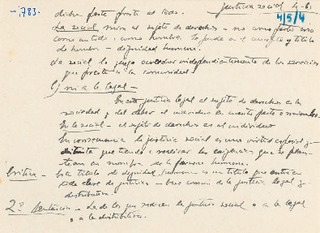 -783.
Justicia social 4-6.
4/5/4
dicha parte frente al todo.
La social mira al sujeto de derechos - no como parte sino
como entidad: como hombre. Se funda en el
de hombre - dignidad humana.
La social lo juzga acreedor independientemente de los servicios
que presta a la comunidad.
b) ni a la legal -
En esta justicia legal el sujeto de derecho es la
sociedad y del deber el individuo en cuanto parte o miembro.
En la social - el sujeto de derecho es el individuo
En consecuencia la justicia social es una virtud especial y
distinta que tiende a realizar las exigencias que se
en nombre de la persona humana.
Crítica - Este título de dignidad humana es un título que entra en
toda clase de justicia - base común de la justicia legal y
distributiva.
2ª Sentencia - La de los que reducen la justicia social o a la legal
o a la distributiva.